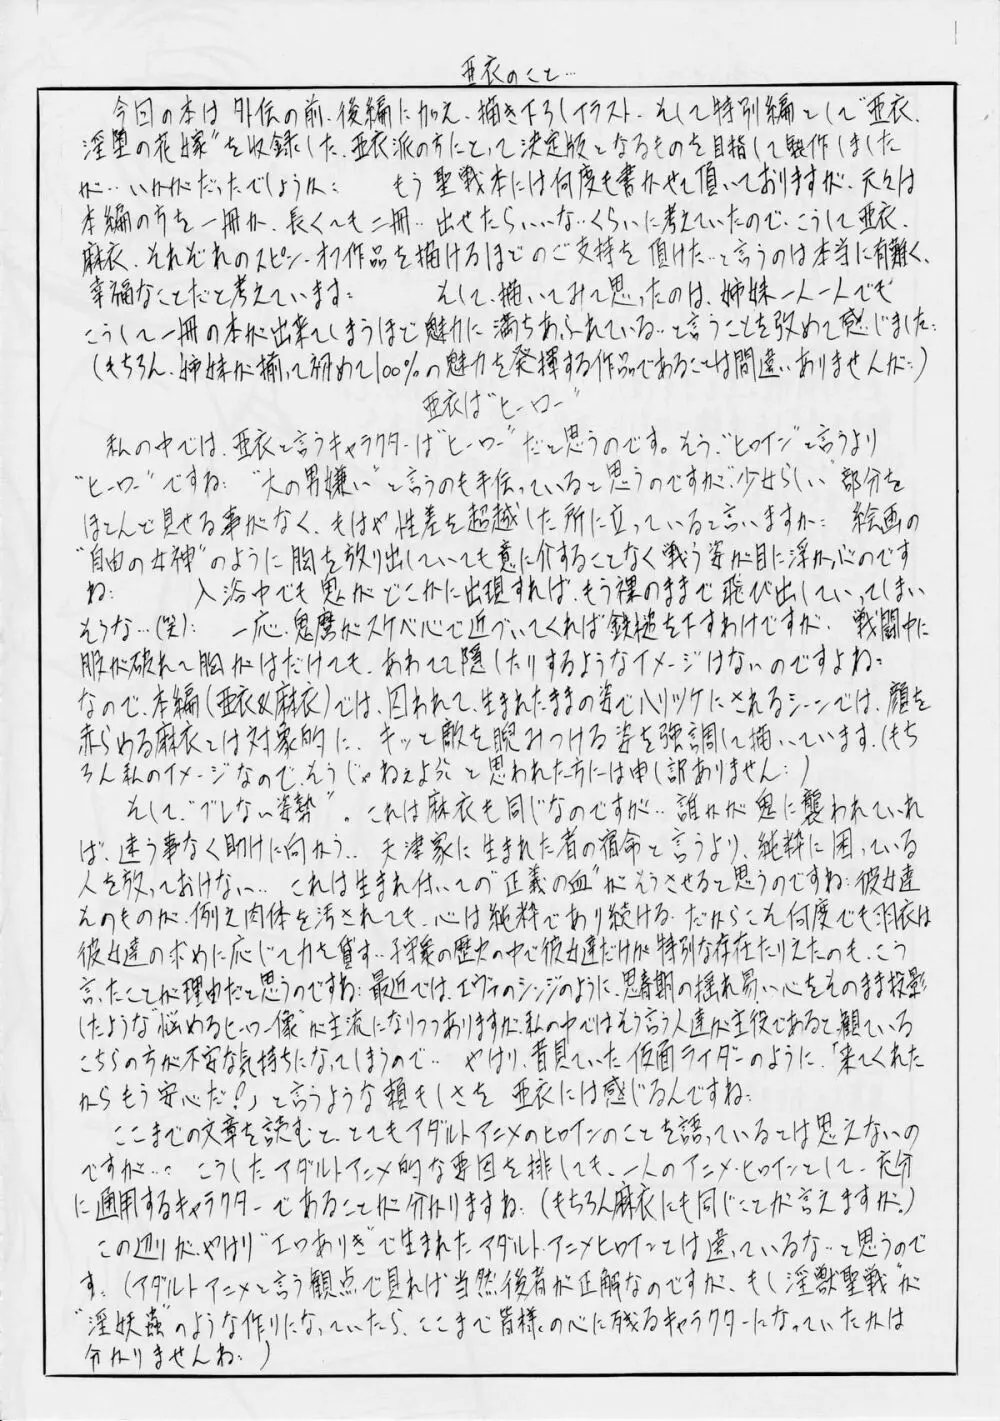 亜衣のこと…
今回の本は外伝の前、後編に加え、描き下ろしイラスト、そして特別編として“亜衣、
淫堕の花嫁”を収録した、亜衣派の方にとって決定版となるものを目指して製作しました
が…いかがだったでしょうか… もう聖戦本には何度も書かせて頂いておりますが、元々は
本編の方を一冊か、長くても二冊…出せたらいいな…くらいに考えていたので、こうして亜衣、
麻衣、それぞれのスピン・オフ作品を描けるほどのご支持を頂けた…と言うのは本当に有難く、
幸福なことだと考えています… そして、描いてみて思ったのは、姉妹一人一人でも
こうして一冊の本が出来てしまうほど魅力に満ちあふれている…と言うことを改めて感じました…
(もちろん、姉妹が揃って初めて100%の魅力を発揮する作品であることは間違いありませんが…)
亜衣は“ヒーロー”
私の中では、亜衣と言うキャラクターは“ヒーロー”だと思うのです。もう、“ヒロイン”と言うより
“ヒーロー”ですね… “大の男嫌い”と言うのも手伝っていると思うのですが、“少女らしい”部分を
ほとんど見せる事がなく、もはや性差を超越した所に立っていると言いますか… 絵画の
“自由の女神”のように胸を放り出していても意に介することなく戦う姿が目に浮かぶのです
ね… 入浴中でも鬼がどこかに出現すれば、もう裸のままで飛び出していってしまい
そうな…(笑)… 一応、鬼麿がスケベ心で近づいてくれば鉄槌を下すわけですが、戦闘中に
服が破れて胸がはだけても、あわてて隠したりするようなイメージはないのですよね…
なので、本編(亜衣&麻衣)では、囚われて、生まれたままの姿でハリツケにされるシーンでは、顔を
赤らめる麻衣とは対象的に、キッと敵を睨みつける姿を強調して描いています、(もち
ろん私のイメージなので、そうじゃねぇよ!と思われた方には申し訳ありません…)
そして、“ブレない姿勢”。これは麻衣も同じなのですが…誰かが鬼に襲われていれ
ば、違う事なく助けに向かう… 天津家に生まれた者の宿命と言うより、純粋に困っている
人を放っておけない… これは生まれ付いての“正義の血”がそうさせると思うのですね…彼女達
そのものが、例え肉体を汚されても、心は純粋であり続ける…だからこそ何度でも羽衣は
彼女達の求めに応じて力を貸す…子守衆の歴史の中で彼女達だけが特別な存在たりえたのも、こう
言ったことが理由だと思うのですね…最近では、エヴァのシンジのように、思春期の揺れ易い心をそのまま投影
したような“悩めるヒーロー像”が主流になりつつありますが、私の中ではそう言う人達が主役であると、観ている
こちらの方が不安な気持ちになってしまうので… やはり、昔見ていた仮面ライダーのように、「来てくれた
からもう安心だ!」と言うような頼もしさを 亜衣には感じるんですね…
ここまでの文章を読むと、とてもアダルトアニメのヒロインのことを語っているとは思えないの
ですが…。こうしたアダルトアニメ的な要因を排しても、一人のアニメ・ヒロインとして、充分
に通用するキャラクターであることが分かりますね…(もちろん麻衣にも同じことが言えますが。)
この辺りが、やはり“エロありき”で生まれたアダルト・アニメヒロインとは違っているな…と思うので
す…(アダルトアニメと言う観点で見れば当然後者が正解なのですが、もし“淫獣聖戦”が
“淫妖蟲”のような作りになっていたら、ここまで皆様の心に残るキャラクターになっていたかは
分かりませんね…)